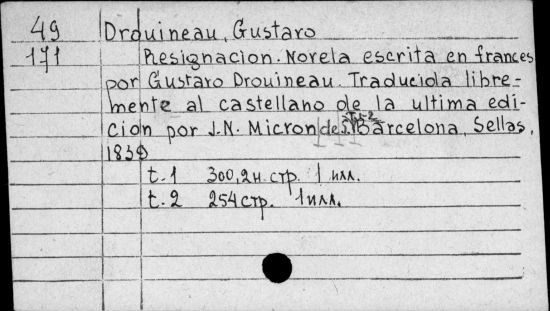 49 Drouineau, Gustavo
171 Resignacion. Novela escrita en frances
por Gustavo Drouineau. Traducida libre-
mente al castellano de la ultima edi-
cion por J.N. Micron de S. Barcelona, Sellas,
1838
t.1 300,2н. стр. 1 илл.
t.2 254 стр. 1 илл.